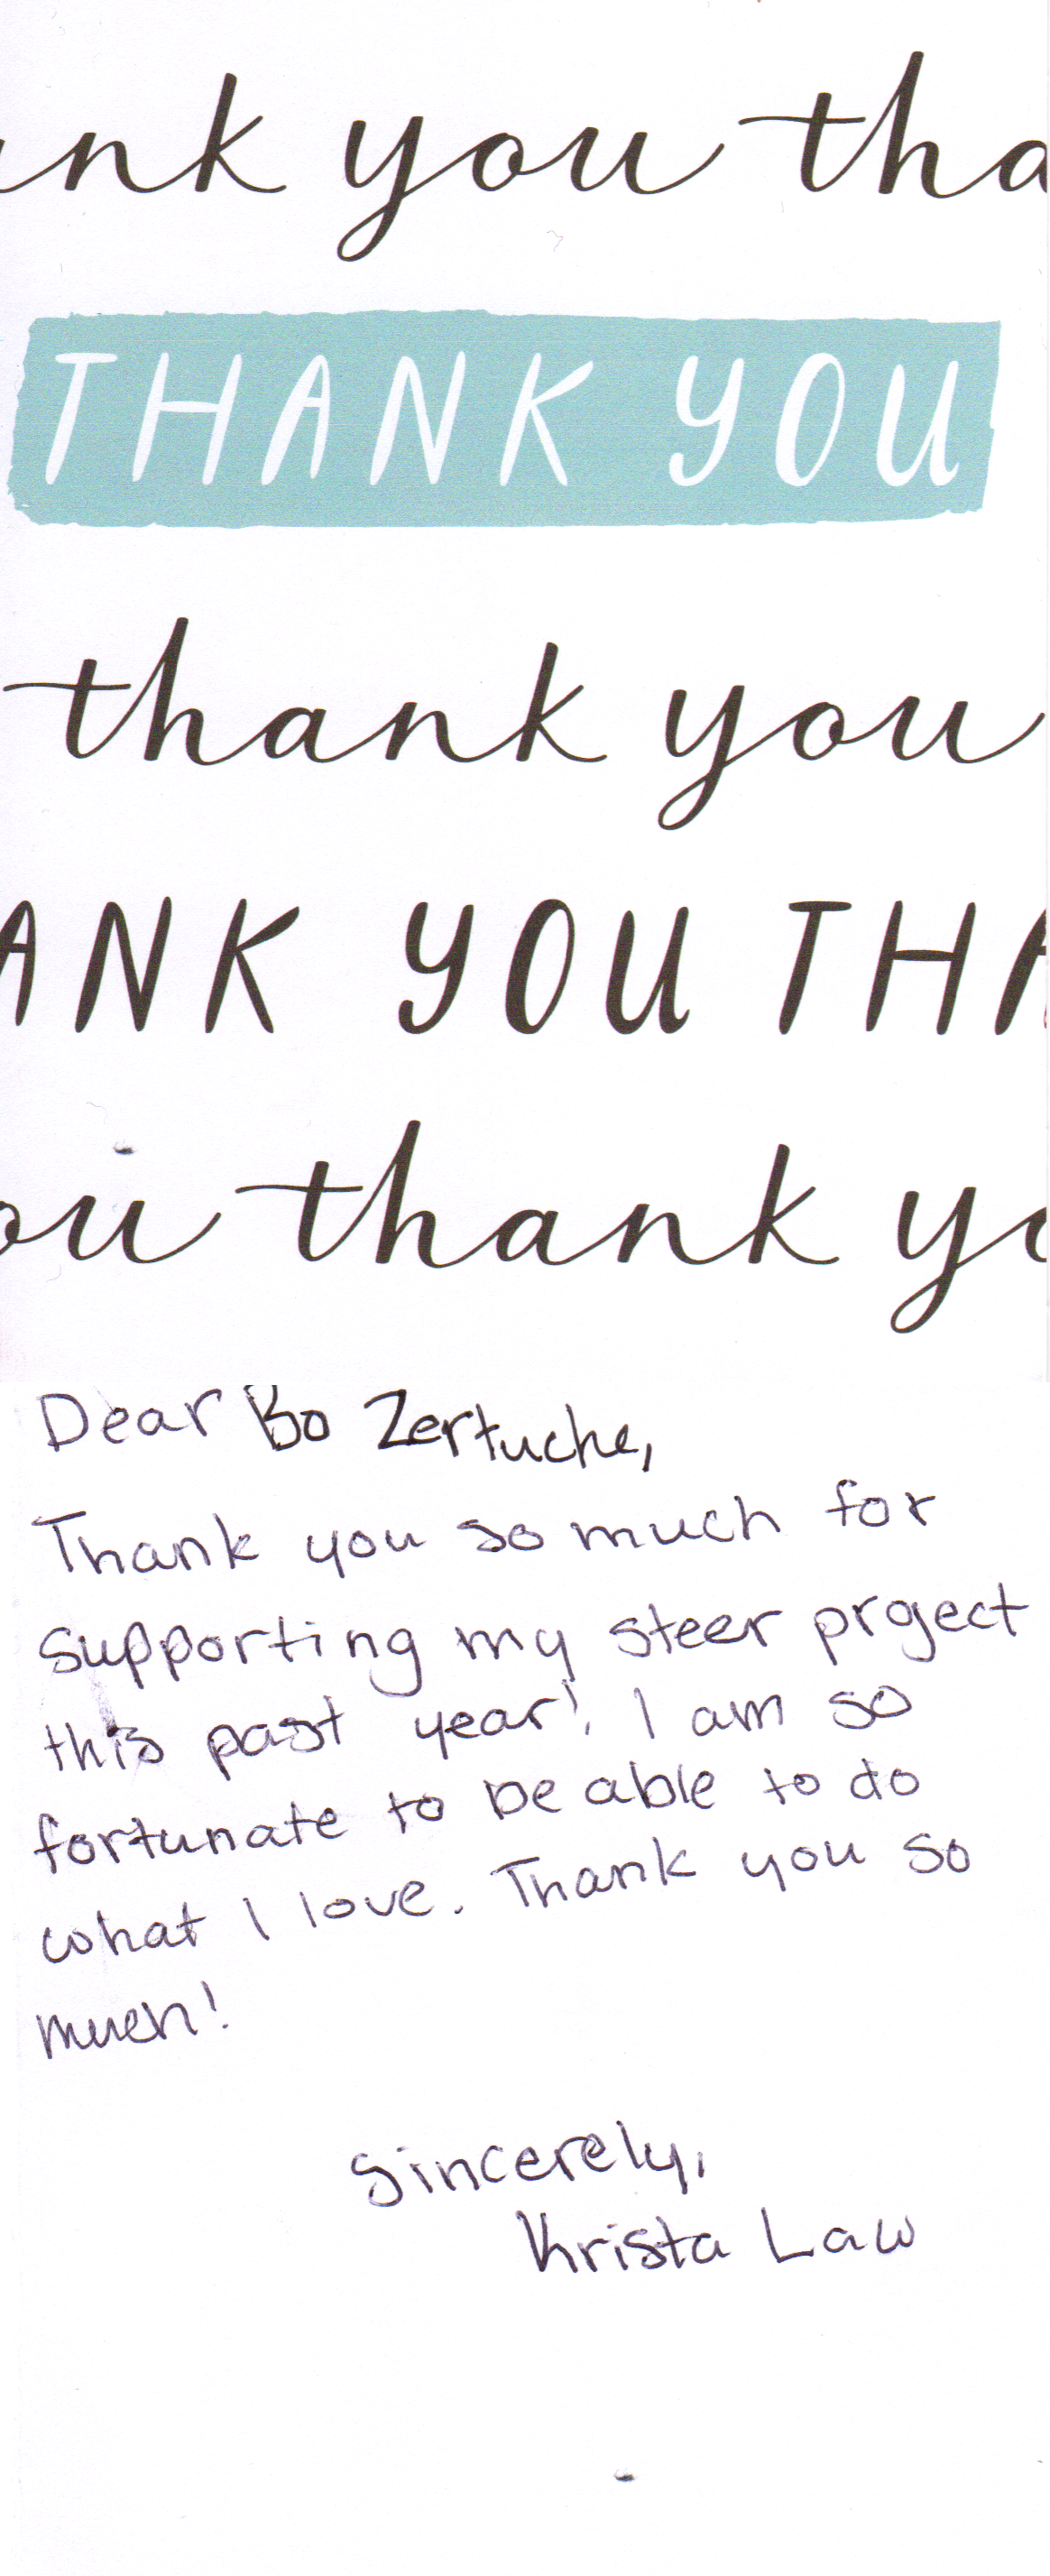 nk you tha
THANK YOU
thank you
ANK YOU THA
ou thank yo
Dear Bo Zertuche,
Thank you so much for
supporting my steer project
this past year! I am so
fortunate to be able to do
what I love. Thank you so
much!
Sincerely,
Krista Law